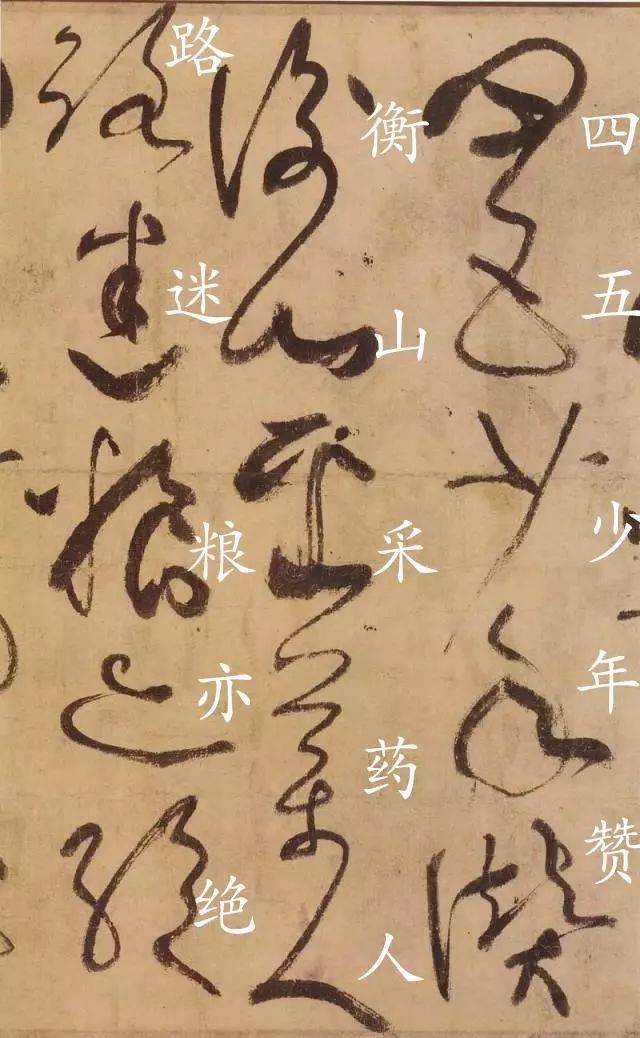 四五少年赞
衡山采药人
路迷粮亦绝